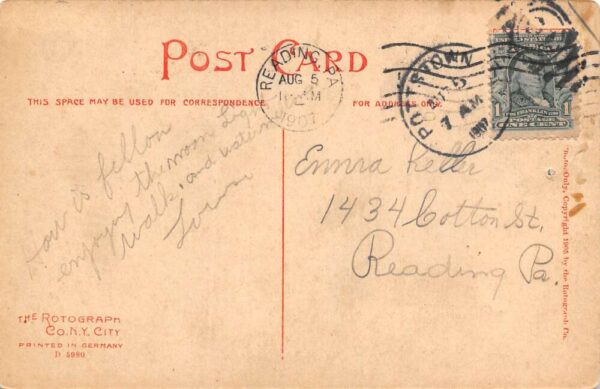 POST CARD
THIS SPACE MAY BE USED FOR CORRESPONDENCE.
FOR ADDRESS ONLY.
READING, PA.
AUG 5
AM
1907
POTTSTOWN
5
7 AM
1907
FRANKLIN
POSTAGE
1 ONE CENT 1
How is fellow
enjoying the moon light
walk, and
town
Emma Keller
1434 Cotton St.
Reading Pa.
THE ROTOGRAPH
CO. N.Y. CITY
PRINTED IN GERMANY
D 5980
Only, Copyright 1905 by the Rotograph Co.